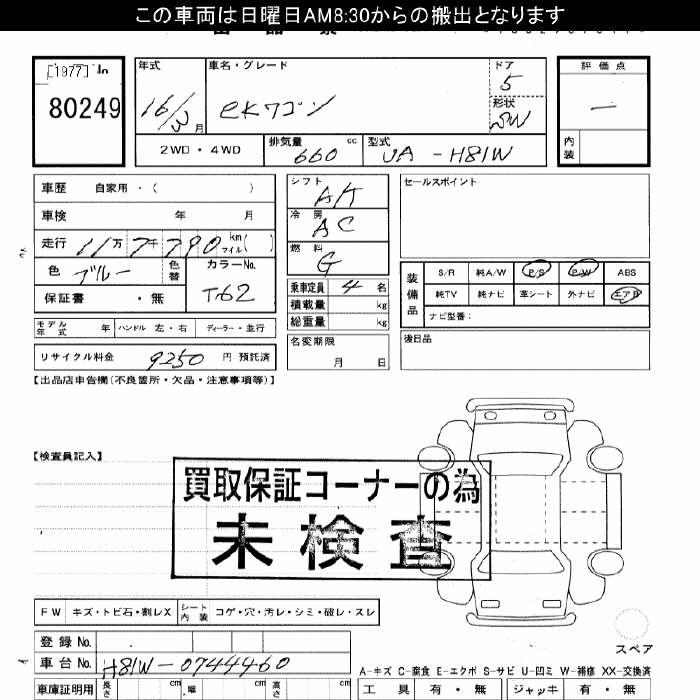 この車両は日曜日AM8:30からの搬出となります
[1977] In
80249
年式 車名・グレード ドア 評価点
16/3月 eKワゴン 5
形状
SW
—
2WD・4WD 排気量 660 cc 型式 UA-H81W
内装
車歴 自家用・( )
車検 年 月
走行 11万7千790 km マイル( )
色 ブルー 色替 カラーNo. T62
保証書 ・無
シフト A/T
冷房 AC
燃料 G
乗車定員 4 名
積載量 kg
総重量 kg
名変期限
月 日
セールスポイント
装備品
S/R 純A/W P/S P/W ABS
純TV 純ナビ 革シート 外ナビ エアB
ナビ型番:
後日品
モデル年式 年 ハンドル 左・右 ディーラー・並行
リサイクル料金 9250 円 預託済
【出品店申告欄(不良箇所・欠品・注意事項等)】
【検査員記入】
買取保証コーナーの為
未検査
FW キズ・トビ石・割レX シート内装 コゲ・穴・汚レ・シミ・破レ・スレ
スペア
登録 No.
車台 No. H81W-0744460
車庫証明用 長さ cm 幅 cm 高さ cm
A-キズ C-腐食 E-エクボ S-サビ U-凹ミ W-補修 XX-交換済
工具 有・無 ジャッキ 有・無